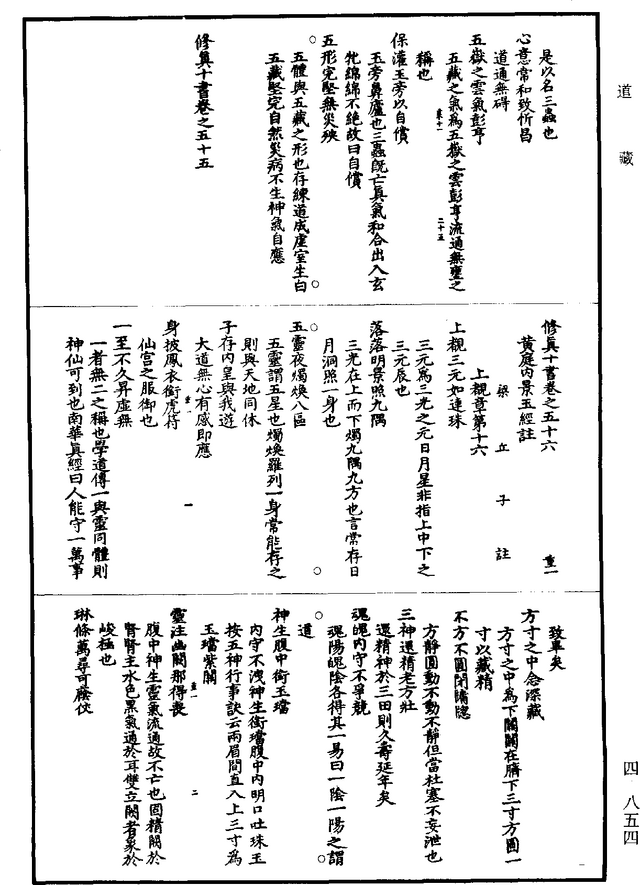 道藏
是以名三蟲也
心意常和致忻昌
道通無碍
五嶽之雲氣彭亨
五藏之氣為五嶽之雲彭亨流通無壅之
稱也
保灌玉旁以自償
玉旁鼻廬也三蟲既亡真氣和合出入玄
牝綿綿不絕故曰自償
五形完堅無災殃
五體與五藏之形也存練道成虛室生白
五藏堅完自然災病不生神氣自應
修真十書卷之五十五
修真十書卷之五十六
重一
黃庭內景玉經註
梁丘子註
上覩章第十六
上覩三元如連珠
三元為三光之元日月星非指上中下之
三元辰也
落落明景照九隅
三光在上而下燭九隅九方也言常存日
月洞照一身也
五靈夜燭煥八區
五靈謂五星也燭煥羅列一身常能存之
則與天地同休
子存內皇與我遊
大道無心有感即應
身披鳳衣銜虎符
仙宮之服御也
一至不久昇虛無
一者無二之稱也學道傳一與靈同體則
神仙可到也南華真經曰人能守一萬事
致畢矣
方寸之中念深藏
方寸之中為下關關在臍下三寸方圓一
寸以藏精
不方不圓閉牖牎
方靜圓動不動不靜但當杜塞不妄泄也
三神還精老方壯
還精神於三田則久壽延年矣
魂魄內守不爭競
魂陽魄陰各得其一易曰一陰一陽之謂
道
神生腹中銜玉璫
內守不洩神生銜璫腹中內明口吐珠玉
按五神行事訣云兩眉間直入上三寸為
玉璫紫闕
靈注幽闕那得喪
腹中神生靈氣流通故不亡也固精闕於
腎腎主水色黑氣通於耳雙立闕者象於
峻極也
琳條萬尋可蔭仗
四·八五四